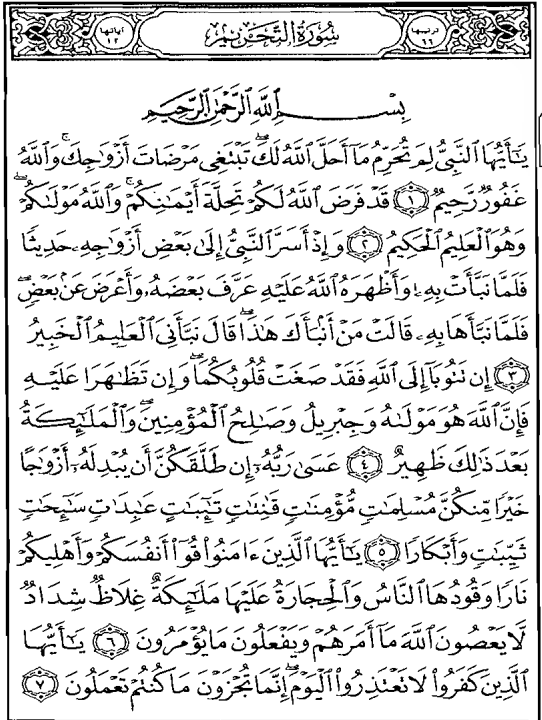 ترتيبها ٦٦ سُورَةُ التَّحْرِيمِ آياتها ١٢
بِسْمِ ٱللَّهِ ٱلرَّحْمَٰنِ ٱلرَّحِيمِ
يَٰٓأَيُّهَا ٱلنَّبِىُّ لِمَ تُحَرِّمُ مَآ أَحَلَّ ٱللَّهُ لَكَ ۖ تَبْتَغِى مَرْضَاتَ أَزْوَٰجِكَ ۚ وَٱللَّهُ
غَفُورٌ رَّحِيمٌ ۝١ قَدْ فَرَضَ ٱللَّهُ لَكُمْ تَحِلَّةَ أَيْمَٰنِكُمْ ۚ وَٱللَّهُ مَوْلَىٰكُمْ ۖ
وَهُوَ ٱلْعَلِيمُ ٱلْحَكِيمُ ۝٢ وَإِذْ أَسَرَّ ٱلنَّبِىُّ إِلَىٰ بَعْضِ أَزْوَٰجِهِۦ حَدِيثًا
فَلَمَّا نَبَّأَتْ بِهِۦ وَأَظْهَرَهُ ٱللَّهُ عَلَيْهِ عَرَّفَ بَعْضَهُۥ وَأَعْرَضَ عَنۢ بَعْضٍ ۖ
فَلَمَّا نَبَّأَهَا بِهِۦ قَالَتْ مَنْ أَنۢبَأَكَ هَٰذَا ۖ قَالَ نَبَّأَنِىَ ٱلْعَلِيمُ ٱلْخَبِيرُ
۝٣ إِن تَتُوبَآ إِلَى ٱللَّهِ فَقَدْ صَغَتْ قُلُوبُكُمَا ۖ وَإِن تَظَٰهَرَا عَلَيْهِ
فَإِنَّ ٱللَّهَ هُوَ مَوْلَىٰهُ وَجِبْرِيلُ وَصَٰلِحُ ٱلْمُؤْمِنِينَ ۖ وَٱلْمَلَٰٓئِكَةُ
بَعْدَ ذَٰلِكَ ظَهِيرٌ ۝٤ عَسَىٰ رَبُّهُۥٓ إِن طَلَّقَكُنَّ أَن يُبْدِلَهُۥٓ أَزْوَٰجًا
خَيْرًا مِّنكُنَّ مُسْلِمَٰتٍ مُّؤْمِنَٰتٍ قَٰنِتَٰتٍ تَٰٓئِبَٰتٍ عَٰبِدَٰتٍ سَٰٓئِحَٰتٍ
ثَيِّبَٰتٍ وَأَبْكَارًا ۝٥ يَٰٓأَيُّهَا ٱلَّذِينَ ءَامَنُوا۟ قُوٓا۟ أَنفُسَكُمْ وَأَهْلِيكُمْ
نَارًا وَقُودُهَا ٱلنَّاسُ وَٱلْحِجَارَةُ عَلَيْهَا مَلَٰٓئِكَةٌ غِلَاظٌ شِدَادٌ
لَّا يَعْصُونَ ٱللَّهَ مَآ أَمَرَهُمْ وَيَفْعَلُونَ مَا يُؤْمَرُونَ ۝٦ يَٰٓأَيُّهَا
ٱلَّذِينَ كَفَرُوا۟ لَا تَعْتَذِرُوا۟ ٱلْيَوْمَ ۖ إِنَّمَا تُجْزَوْنَ مَا كُنتُمْ تَعْمَلُونَ ۝٧